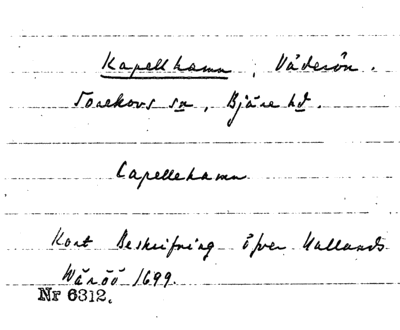 Kapellhamn, Väderön.
Torekovs sn, Bjäre hd.
Capellehamn
Kort Beskrifning öfver Hallands
Wäröö 1699.
Nr 6312.